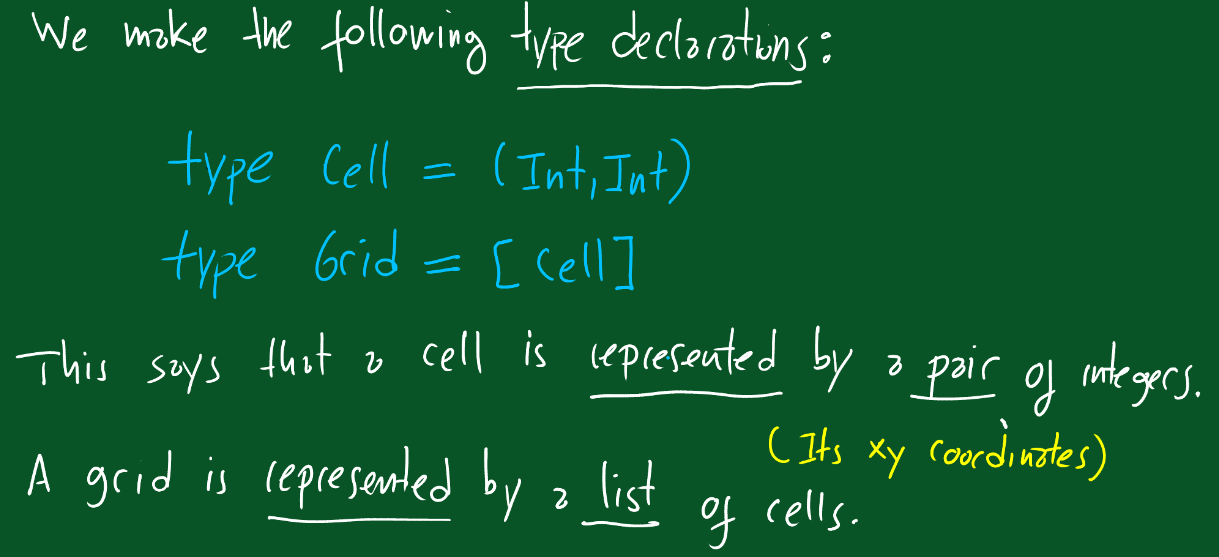 We make the following type declarations:
type Cell = (Int,Int)
type Grid = [Cell]
This says that a cell is represented by a pair of integers.
(Its xy coordinates)
A grid is represented by a list of cells.